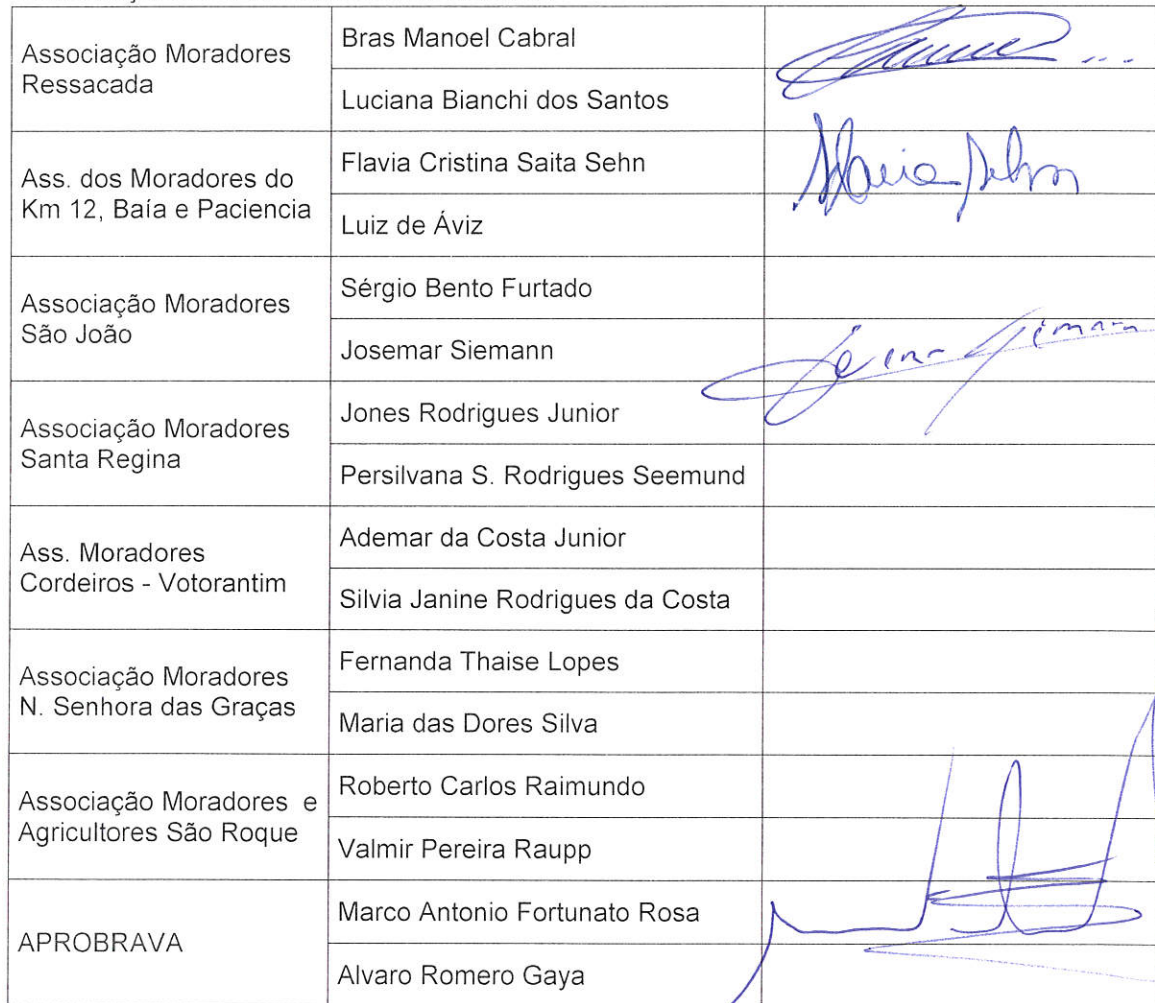 Associação Moradores
Ressacada
Bras Manoel Cabral
Luciana Bianchi dos Santos
Ass. dos Moradores do
Km 12, Baía e Paciencia
Flavia Cristina Saita Sehn
Luiz de Áviz
Associação Moradores
São João
Sérgio Bento Furtado
Josemar Siemann
Associação Moradores
Santa Regina
Jones Rodrigues Junior
Persilvana S. Rodrigues Seemund
Ass. Moradores
Cordeiros - Votorantim
Ademar da Costa Junior
Silvia Janine Rodrigues da Costa
Associação Moradores
N. Senhora das Graças
Fernanda Thaise Lopes
Maria das Dores Silva
Associação Moradores e
Agricultores São Roque
Roberto Carlos Raimundo
Valmir Pereira Raupp
APROBRAVA
Marco Antonio Fortunato Rosa
Alvaro Romero Gaya